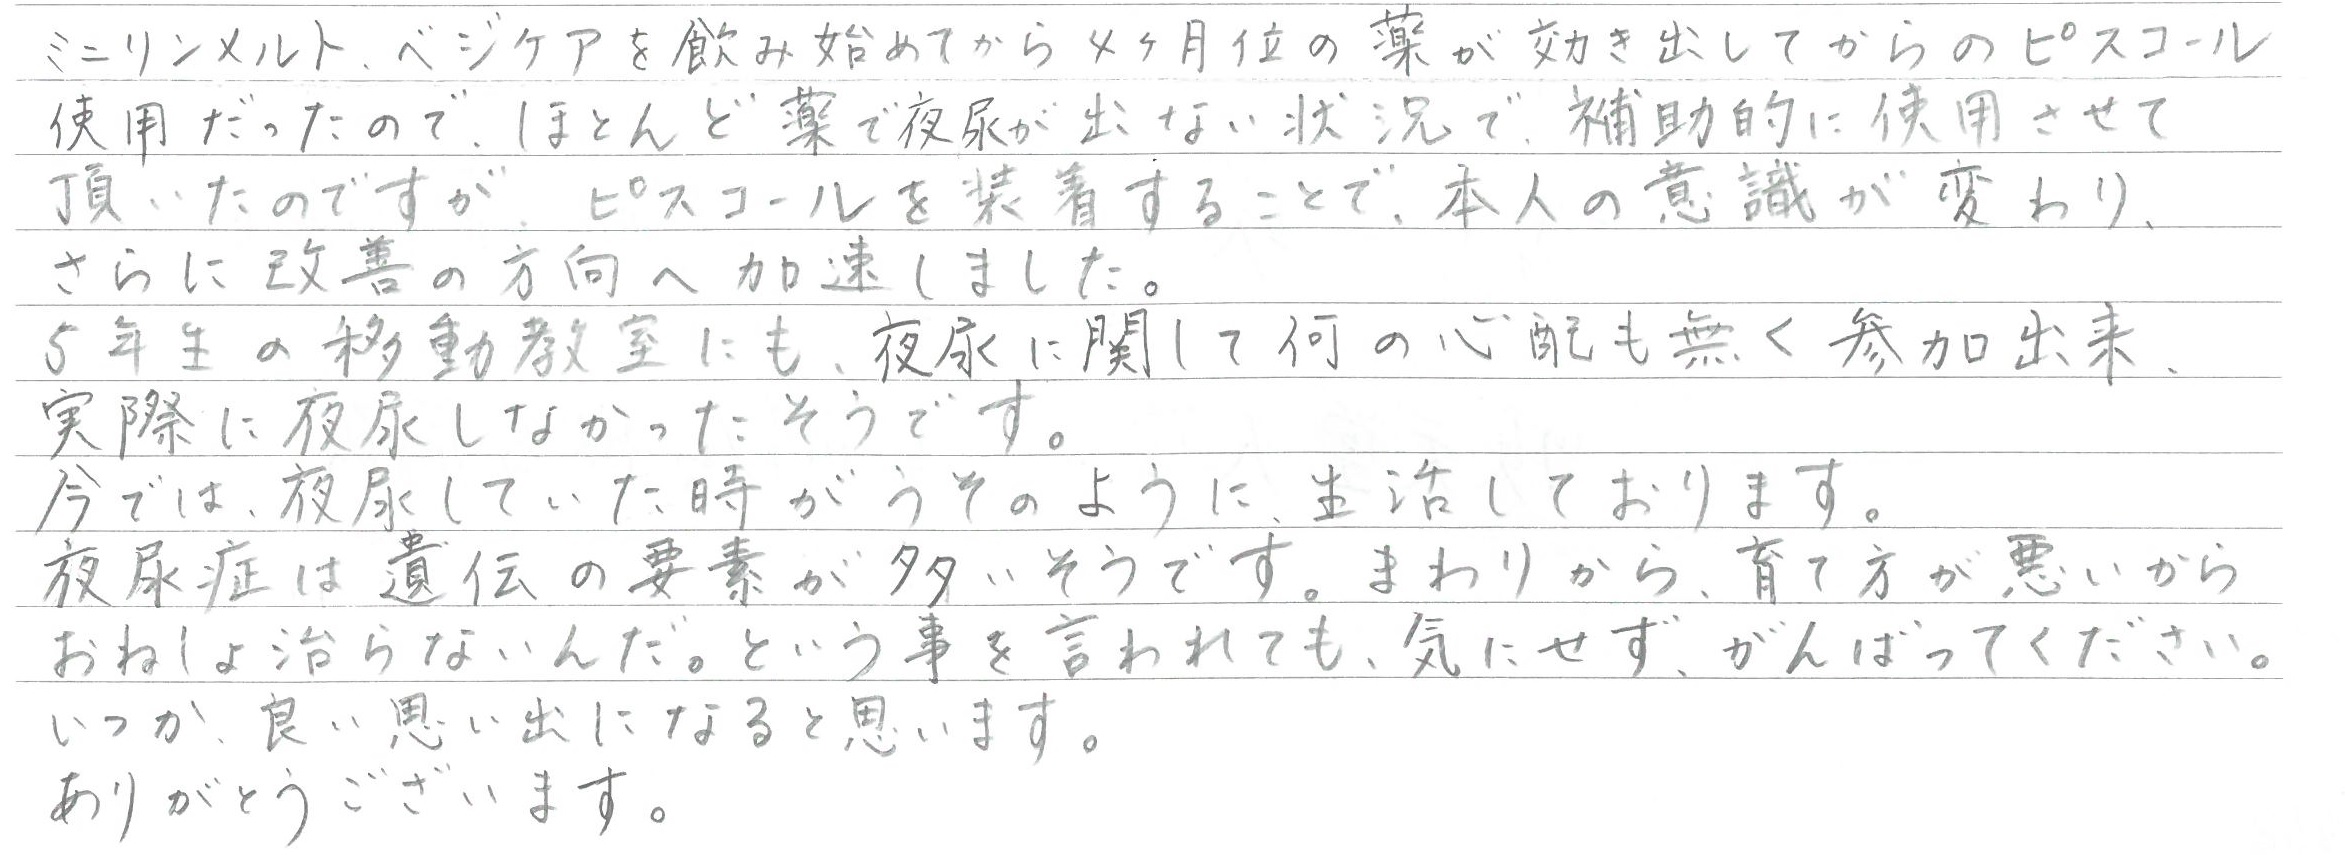 ミニリンメルト、ベジケアを飲み始めてから4ヶ月位の薬が効き出してからのピスコール
使用だったので、ほとんど薬で夜尿が出ない状況で、補助的に使用させて
頂いたのですが、ピスコールを装着することで、本人の意識が変わり、
さらに改善の方向へ加速しました。
5年生の移動教室にも、夜尿に関して何の心配も無く参加出来、
実際に夜尿しなかったそうです。
今では、夜尿していた時がうそのように、生活しております。
夜尿症は遺伝の要素が多いそうです。まわりから、育て方が悪いから
おねしょ治らないんだ。という事を言われても、気にせず、がんばってください。
いつか、良い思い出になると思います。
ありがとうございます。